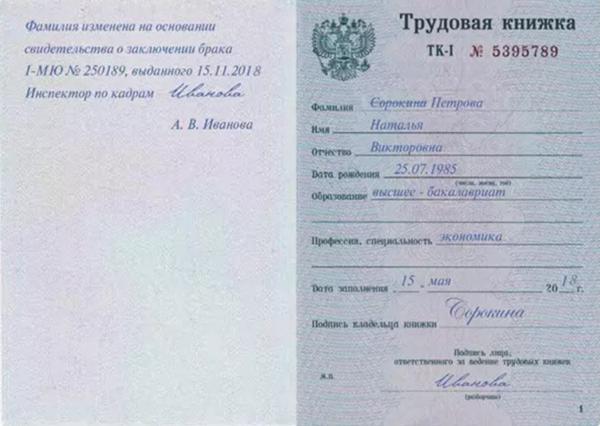 Фамилия изменена на основании
свидетельства о заключении брака
I-МЮ № 250189, выданного 15.11.2018
Инспектор по кадрам Иванова
А. В. Иванова
Трудовая книжка
ТК-I № 5395789
Фамилия Сорокина Петрова
Имя Наталья
Отчество Викторовна
Дата рождения 25.07.1985
(число, месяц, год)
Образование высшее - бакалавриат
Профессия, специальность экономика
Дата заполнения 15 . мая 2018 г.
Подпись владельца книжки Сорокина
Подпись лица,
ответственного за ведение трудовых книжек
м.п. Иванова
(разборчиво)
1